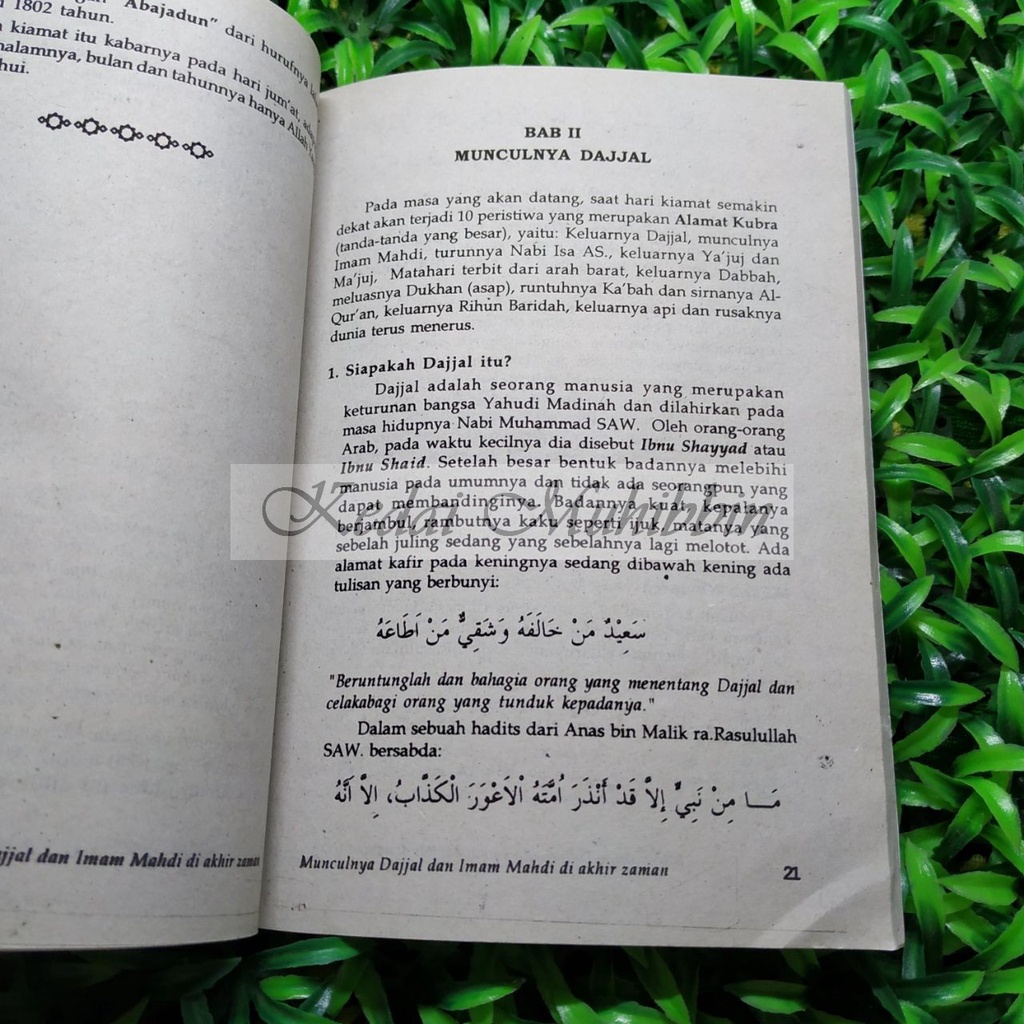 "Abajadun" dari hurufnya
1802 tahun.
kiamat itu kabarnya pada hari jum'at,
malamnya, bulan dan tahunnya hanya Allah
hui.
ajjal dan Imam Mahdi di akhir zaman
BAB II
MUNCULNYA DAJJAL
Pada masa yang akan datang, saat hari kiamat semakin
dekat akan terjadi 10 peristiwa yang merupakan Alamat Kubra
(tanda-tanda yang besar), yaitu: Keluarnya Dajjal, munculnya
Imam Mahdi, turunnya Nabi Isa AS., keluarnya Ya'juj dan
Ma'juj, Matahari terbit dari arah barat, keluarnya Dabbah,
meluasnya Dukhan (asap), runtuhnya Ka'bah dan sirnanya Al-
Qur'an, keluarnya Rihun Baridah, keluarnya api dan rusaknya
dunia terus menerus.
1. Siapakah Dajjal itu?
Dajjal adalah seorang manusia yang merupakan
keturunan bangsa Yahudi Madinah dan dilahirkan pada
masa hidupnya Nabi Muhammad SAW. Oleh orang-orang
Arab, pada waktu kecilnya dia disebut Ibnu Shayyad atau
Ibnu Shaid. Setelah besar bentuk badannya melebihi
manusia pada umumnya dan tidak ada seorangpun yang
dapat membandinginya. Badannya kuat, kepalanya
berjambul, rambutnya kaku seperti ijuk, matanya yang
sebelah juling sedang yang sebelahnya lagi melotot. Ada
alamat kafir pada keningnya sedang dibawah kening ada
tulisan yang berbunyi:
سَعِيْدٌ مَنْ خَالَفَهُ وَشَقِيٌّ مَنْ اَطَاعَهُ
"Beruntunglah dan bahagia orang yang menentang Dajjal dan
celakabagi orang yang tunduk kepadanya."
Dalam sebuah hadits dari Anas bin Malik ra.Rasulullah
SAW. bersabda:
مَـــا مِنْ نَبِيٍّ إِلاَّ قَدْ أَنْذَرَ اُمَّتَهُ الْاَعْوَرَ الْكَذَّابُ، اِلاَّ اَنَّهُ
Munculnya Dajjal dan Imam Mahdi di akhir zaman
21
Kedai Muhibbin